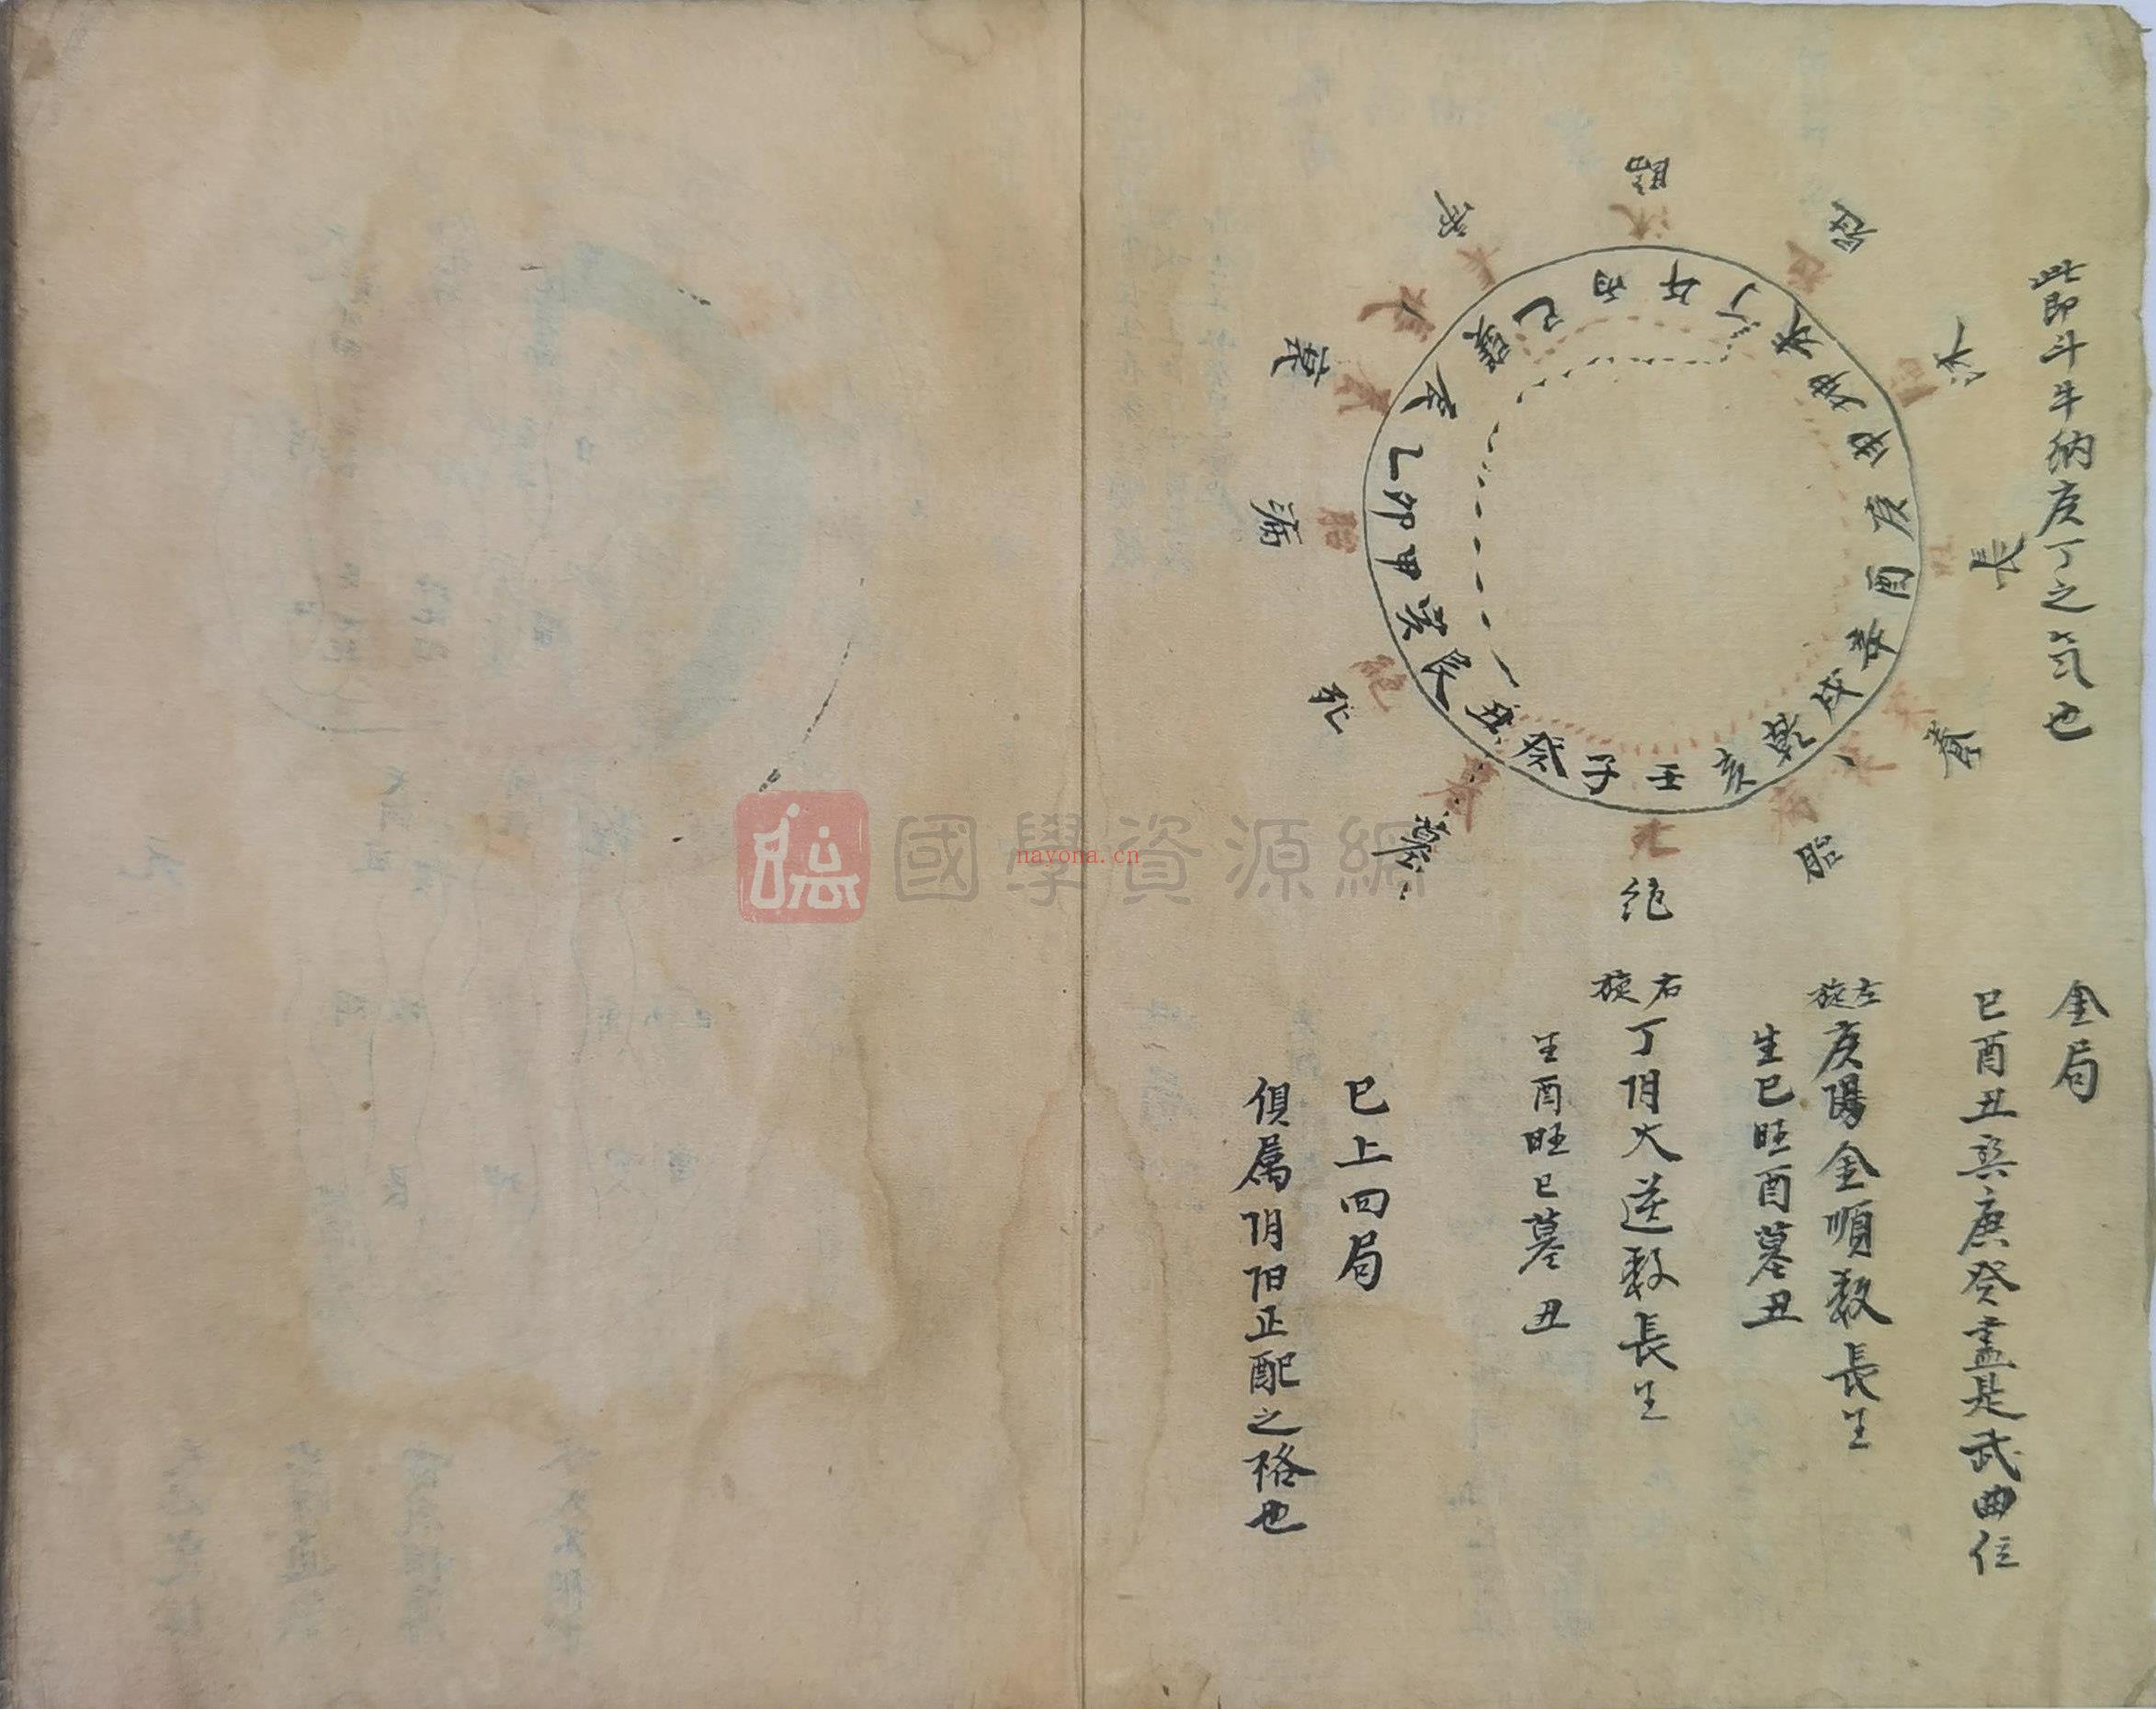 此即斗牛納庚丁之氣也
金局
巳酉丑巽庚癸盡是武曲位
左旋
庚陽金順数長生
生巳旺酉墓丑
右旋
丁阴火逆数長生
生酉旺巳墓丑
已上四局
俱属阴阳正配之格也
臨
冠
沐
長
養
胎
绝
墓
死
病
衰
帝
丙午丁未坤申庚酉辛戌乾亥壬子癸丑艮寅甲卯乙辰巽巳
國學資源網
nayona.cn